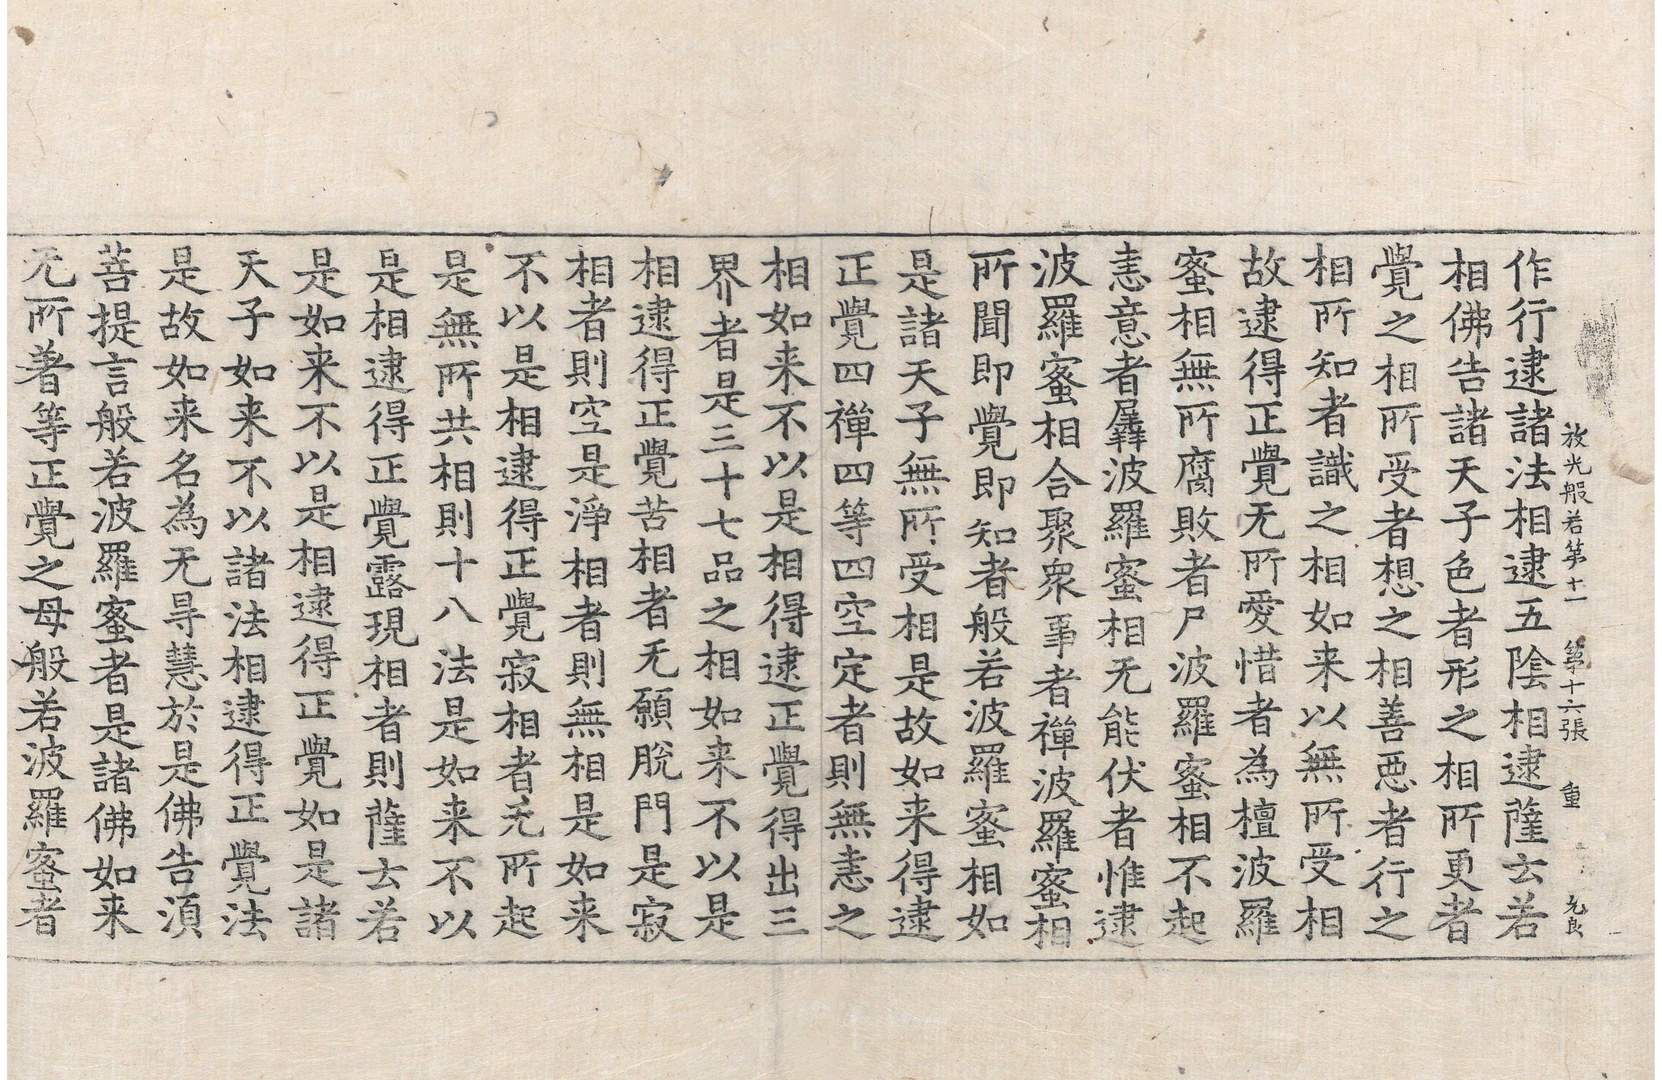 放光般若第十一 第十六張 重 元良
作行逮諸法相逮五陰相逮薩云若
相佛告諸天子色者形之相所更者
覺之相所受者想之相善悪者行之
相所知者識之相如来以無所受相
故逮得正覺无所愛惜者為檀波羅
蜜相無所腐敗者尸波羅蜜相不起
恚意者羼波羅蜜相无能伏者惟逮
波羅蜜相合聚衆事者禪波羅蜜相
所聞即覺即知者般若波羅蜜相如
是諸天子無所受相是故如来得逮
正覺四禪四等四空定者則無恚之
相如来不以是相得逮正覺得出三
界者是三十七品之相如来不以是
相逮得正覺苦相者无願脫門是寂
相者則空是淨相者則無相是如来
不以是相逮得正覺寂相者无所起
是無所共相則十八法是如来不以
是相逮得正覺露現相者則薩云若
是如来不以是相逮得正覺如是諸
天子如来不以諸法相逮得正覺法
是故如来名為无㝵慧於是佛告湏
菩提言般若波羅蜜者是諸佛如来
无所著等正覺之母般若波羅蜜者